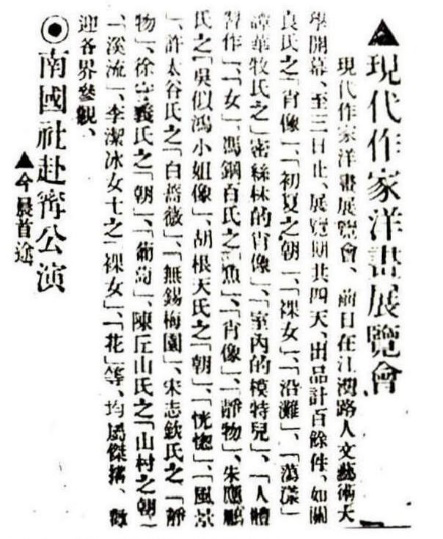 ▲現代作家洋畫展覽會
現代作家洋畫展覽會、前日在江灣路人文藝術大
學開幕、至三日止、展覽期共四天、出品計百餘件、如關
良氏之「肖像」、「初夏之朝」、「裸女」、「沿灘」、「蕩漾」
譚華牧氏之「密絲林的肖像」、「室內的模特兒」、「人體
習作」、「女」、馮鋼百氏之「魚」、「肖像」、「靜物」、朱應鵬
氏之「吳似鴻小姐像」、胡根天氏之「朝」、「恍惚」、「風景
」、許太谷氏之「白薔薇」、「無錫梅園」、宋志欽氏之「靜
物」、徐守義氏之「朝」、「葡萄」、陳丘山氏之「山村之朝」
「溪流」、李潔冰女士之「裸女」、「花」等、均屬傑構、歡
迎各界參觀、
◉南國社赴甯公演
▲今晨首途